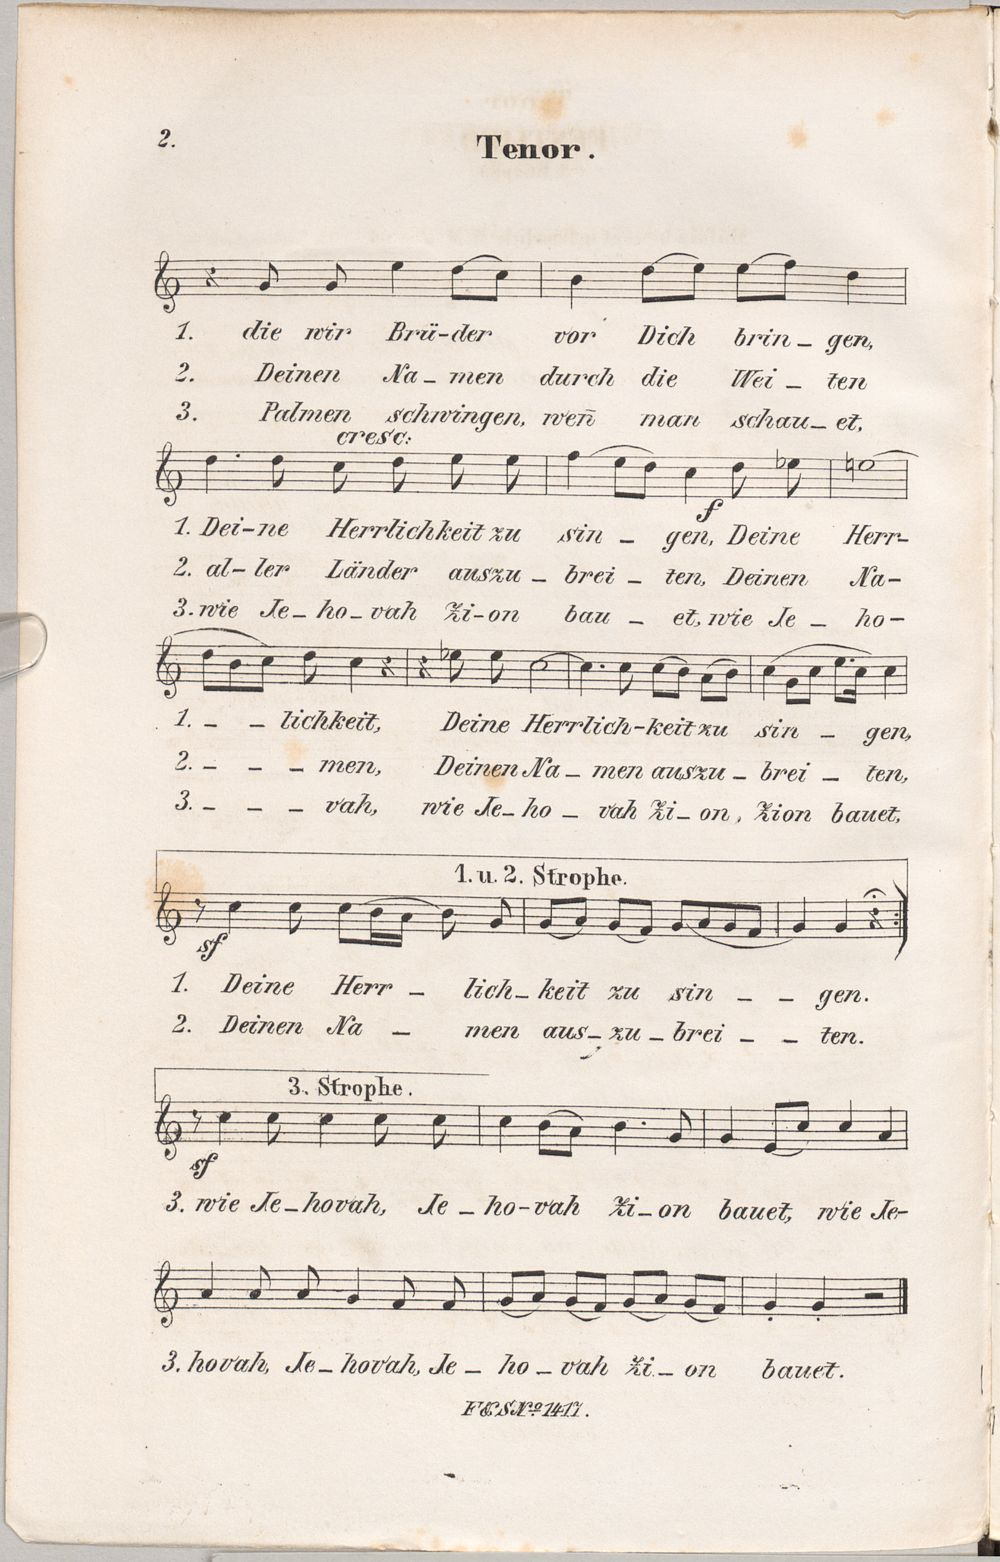 2.
Tenor.
1. die wir Brü-der vor Dich brin - gen,
2. Deinen Na - men durch die Wei - ten
3. Palmen schwingen, weñ man schau - et,
cresc:
f
1. Dei-ne Herrlichkeit zu sin - gen, Deine Herr-
2. al-ler Länder auszu - brei - ten, Deinen Na-
3. wie Je - ho - vah Zi-on bau - et, wie Je - ho-
1. - - lichkeit, Deine Herrlich-keit zu sin - gen,
2. - - - men, Deinen Na - men auszu - brei - ten,
3. - - - vah, wie Je - ho - vah Zi - on, Zion bauet,
1. u. 2. Strophe.
sf
1. Deine Herr - lich - keit zu sin - - gen.
2. Deinen Na - men aus - zu - brei - - ten.
3. Strophe.
sf
3. wie Je - hovah, Je - ho-vah Zi - on bauet, wie Je-
3. hovah, Je - hovah, Je - ho - vah Zi - on bauet.
F&S Nº 1417.